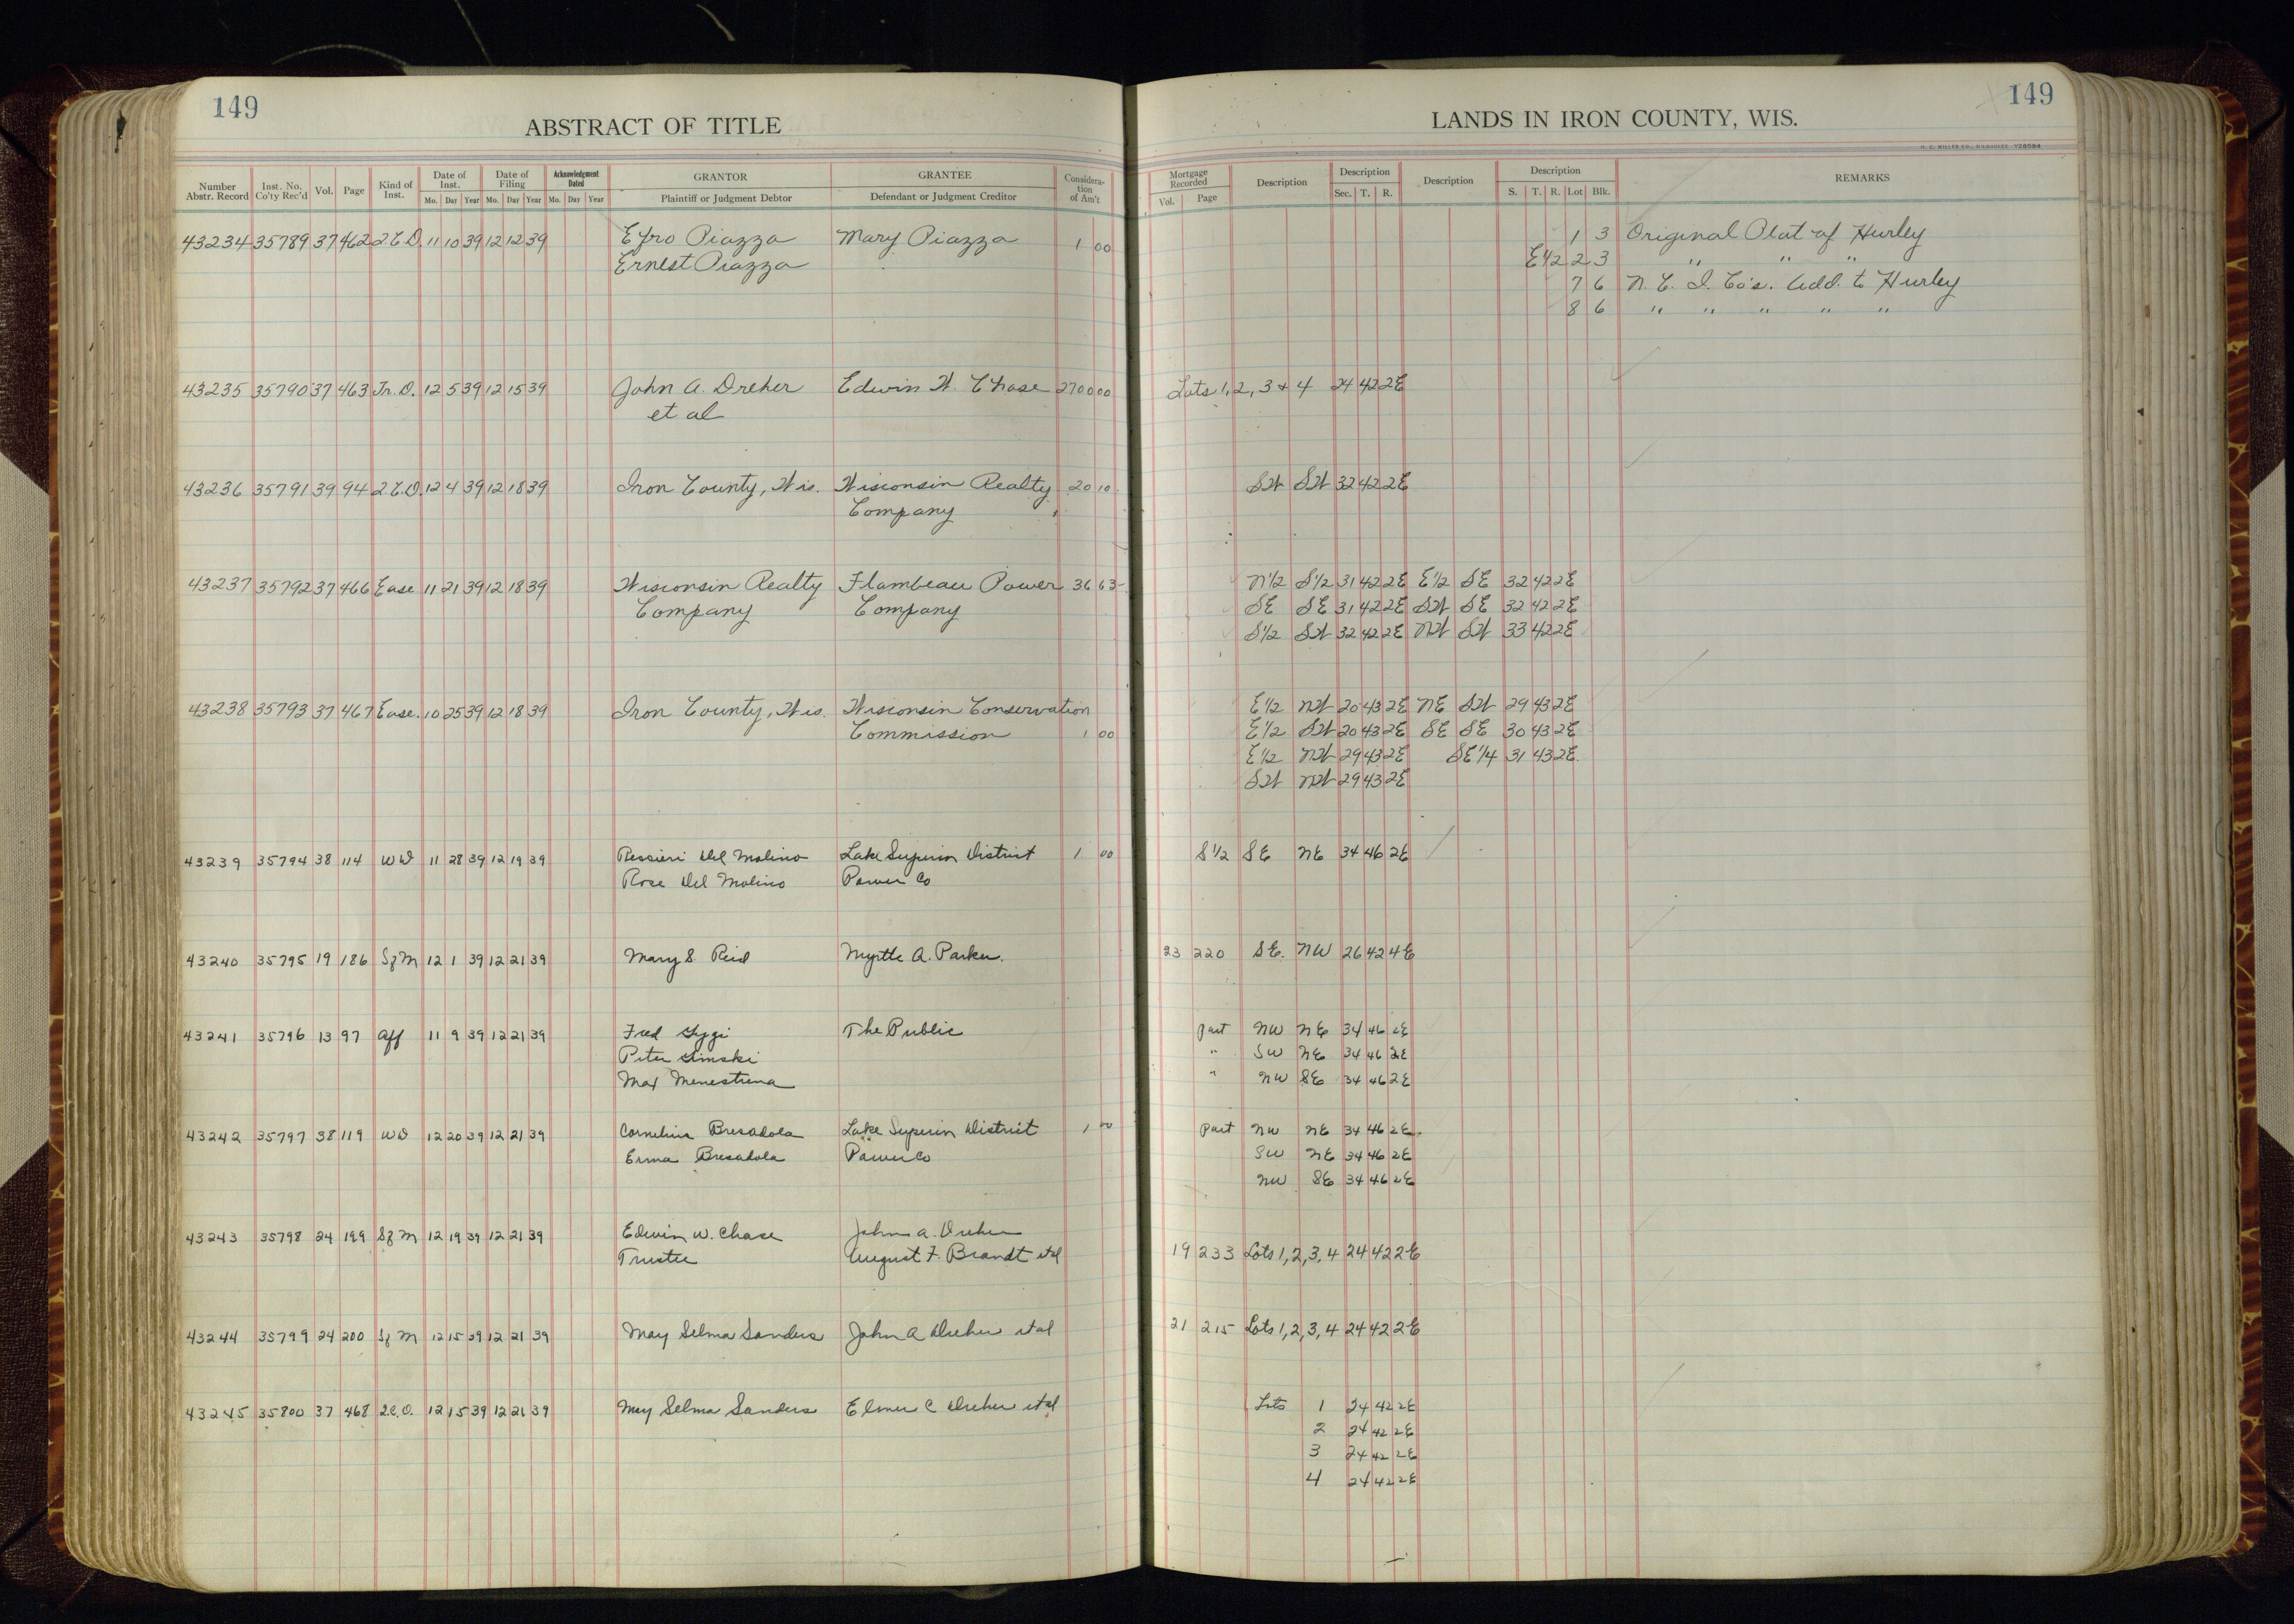 149
ABSTRACT OF TITLE
Number Abstr. Record Inst. No. Co'ty Rec'd Vol. Page Kind of Inst. Date of Inst. Mo. Day Year Date of Filing Mo. Day Year Acknowledgment Dated Mo. Day Year GRANTOR Plaintiff or Judgment Debtor GRANTEE Defendant or Judgment Creditor Considera- tion of Am't
43234 35789 37 462 2.C.D. 11 10 39 12 12 39 Efro Piazza Mary Piazza 1 00
Ernest Piazza
43235 35790 37 463 Tr. D. 12 5 39 12 15 39 John A. Dreher Edwin W. Chase 2700 00
et al
43236 35791 39 94 2.C.D. 12 4 39 12 18 39 Iron County, Wis. Wisconsin Realty 20 10
Company
43237 35792 37 466 Ease. 11 21 39 12 18 39 Wisconsin Realty Flambeau Power 36 63
Company Company
43238 35793 37 467 Ease. 10 25 39 12 18 39 Iron County, Wis. Wisconsin Conservation
Commission 1 00
43239 35794 38 114 WD 11 28 39 12 19 39 Del Molino Lake Superior District 1 00
Rose Del Molino Power Co
43240 35795 19 186 Sf M 12 1 39 12 21 39 Mary S. Reid Myrtle A. Parker.
43241 35796 13 97 Aff 11 9 39 12 21 39 Fred The Public
Peter
Max Menestrina
43242 35797 38 119 WD 12 20 39 12 21 39 Cornelius Bresadola Lake Superior District 1 00
Erma Bresadola Power Co
43243 35798 24 199 Sf M 12 19 39 12 21 39 Edwin W. Chase John A. Dreher
Trustee August F. Brandt et al
43244 35799 24 200 Sf M 12 15 39 12 21 39 May Selma Sanders John A Dreher et al
43245 35800 37 468 2.C.D. 12 15 39 12 21 39 May Selma Sanders Elmer C Dreher et al
149
LANDS IN IRON COUNTY, WIS.
Mortgage Recorded Vol. Page Description Description Sec. T. R. Description Description S. T. R. Lot Blk. REMARKS
1 3 Original Plat of Hurley
E1/2 2 3 " " "
7 6 N. C. I. Co's. Add. to Hurley
8 6 " " " " "
Lots 1, 2, 3 & 4 24 42 2E
SW SW 32 42 2E
N1/2 S1/2 31 42 2E E1/2 SE 32 42 2E
SE SE 31 42 2E SW SE 32 42 2E
S1/2 SW 32 42 2E NW SW 33 42 2E
E1/2 NW 20 43 2E NE SW 29 43 2E
E1/2 SW 20 43 2E SE SE 30 43 2E
E1/2 NW 29 43 2E SE1/4 31 43 2E
SW NW 29 43 2E
S1/2 SE NE 34 46 2E
23 220 SE. NW 26 42 4E
Part NW NE 34 46 2E
" SW NE 34 46 2E
" NW SE 34 46 2E
Part NW NE 34 46 2E
SW NE 34 46 2E
NW SE 34 46 2E
19 233 Lots 1, 2, 3, 4 24 42 2E
21 215 Lots 1, 2, 3, 4 24 42 2E
Lots 1 24 42 2E
2 24 42 2E
3 24 42 2E
4 24 42 2E